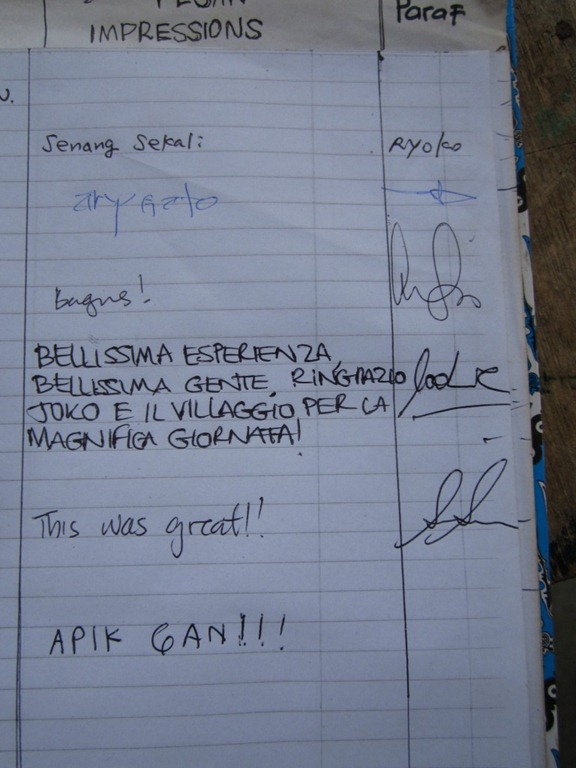 PESAN
IMPRESSIONS
Paraf
Senang Sekali
Ryoko
bagus!
BELLISSIMA ESPERIENZA,
BELLISSIMA GENTE. RINGRAZIO
JOKO E IL VILLAGGIO PER LA
MAGNIFICA GIORNATA!
This was great!!
APIK GAN!!!